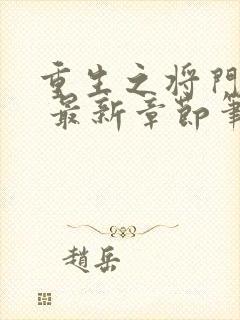 重生之将門
最新章節筆
趙岳